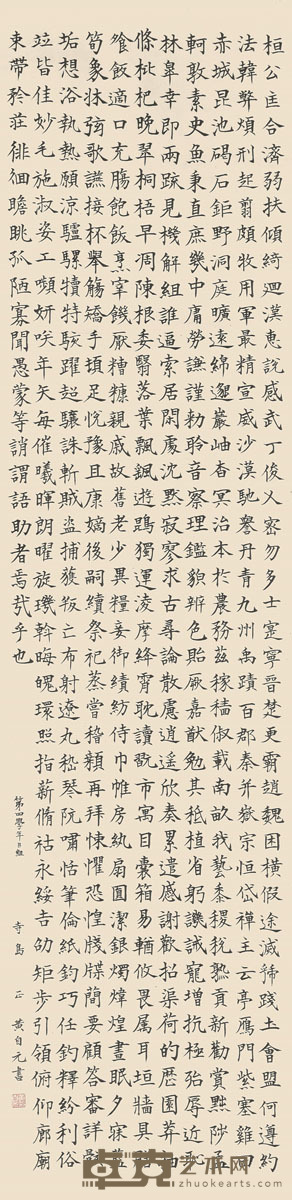 桓公匡合濟弱扶傾綺迴漢惠說感武丁俊乂密勿多士寔寧晉楚更霸趙魏困橫假途滅虢踐土會盟何遵約
法韓弊煩刑起翦頗牧用軍最精宣威沙漠馳譽丹青九州禹蹟百郡秦并嶽宗恒岱禪主云亭雁門紫塞雞田
赤城昆池碣石鉅野洞庭曠遠綿邈巖岫杳冥治本於農務茲稼穡俶載南畝我藝黍稷稅熟貢新勸賞黜陟孟
軻敦素史魚秉直庶幾中庸勞謙謹勑聆音察理鑑貌辨色貽厥嘉猷勉其祗植省躬譏誡寵增抗極殆辱近恥
林皋幸即兩疏見機解組誰逼索居閑處沈默寂寥求古尋論散慮逍遙欣奏累遣慼謝歡招渠荷的歷園莽抽
條枇杷晚翠桐梧早凋陳根委翳落葉飄颻遊鵾獨運凌摩絳霄耽讀翫市寓目囊箱易輶攸畏屬耳垣牆具膳
飧飯適口充腸飽飫烹宰饑厭糟糠親戚故舊老少異糧妾御績紡侍巾帷房紈扇圓潔銀燭煒煌晝眠夕寐藍
筍象牀弦歌讌接杯舉觴矯手頓足悅豫且康嫡後嗣續祭祀蒸嘗稽顙再拜悚懼恐惶牋牒簡要顧答審詳骸
垢想浴執熱願涼驢騾犢特駭躍超驤誅斬賊盜捕獲叛亡布射遼丸嵇琴阮嘯恬筆倫紙鈞巧任釣釋紛利俗
竝皆佳妙毛施淑姿工顰妍咲年矢每催曦暉朗曜旋璣斡晦魄環照指薪脩祜永綏吉劭矩步引領俯仰廊廟
束帶矜莊徘徊瞻眺孤陋寡聞愚蒙等誚謂語助者焉哉乎也
第四學年B組　寺島　正　黃自元書